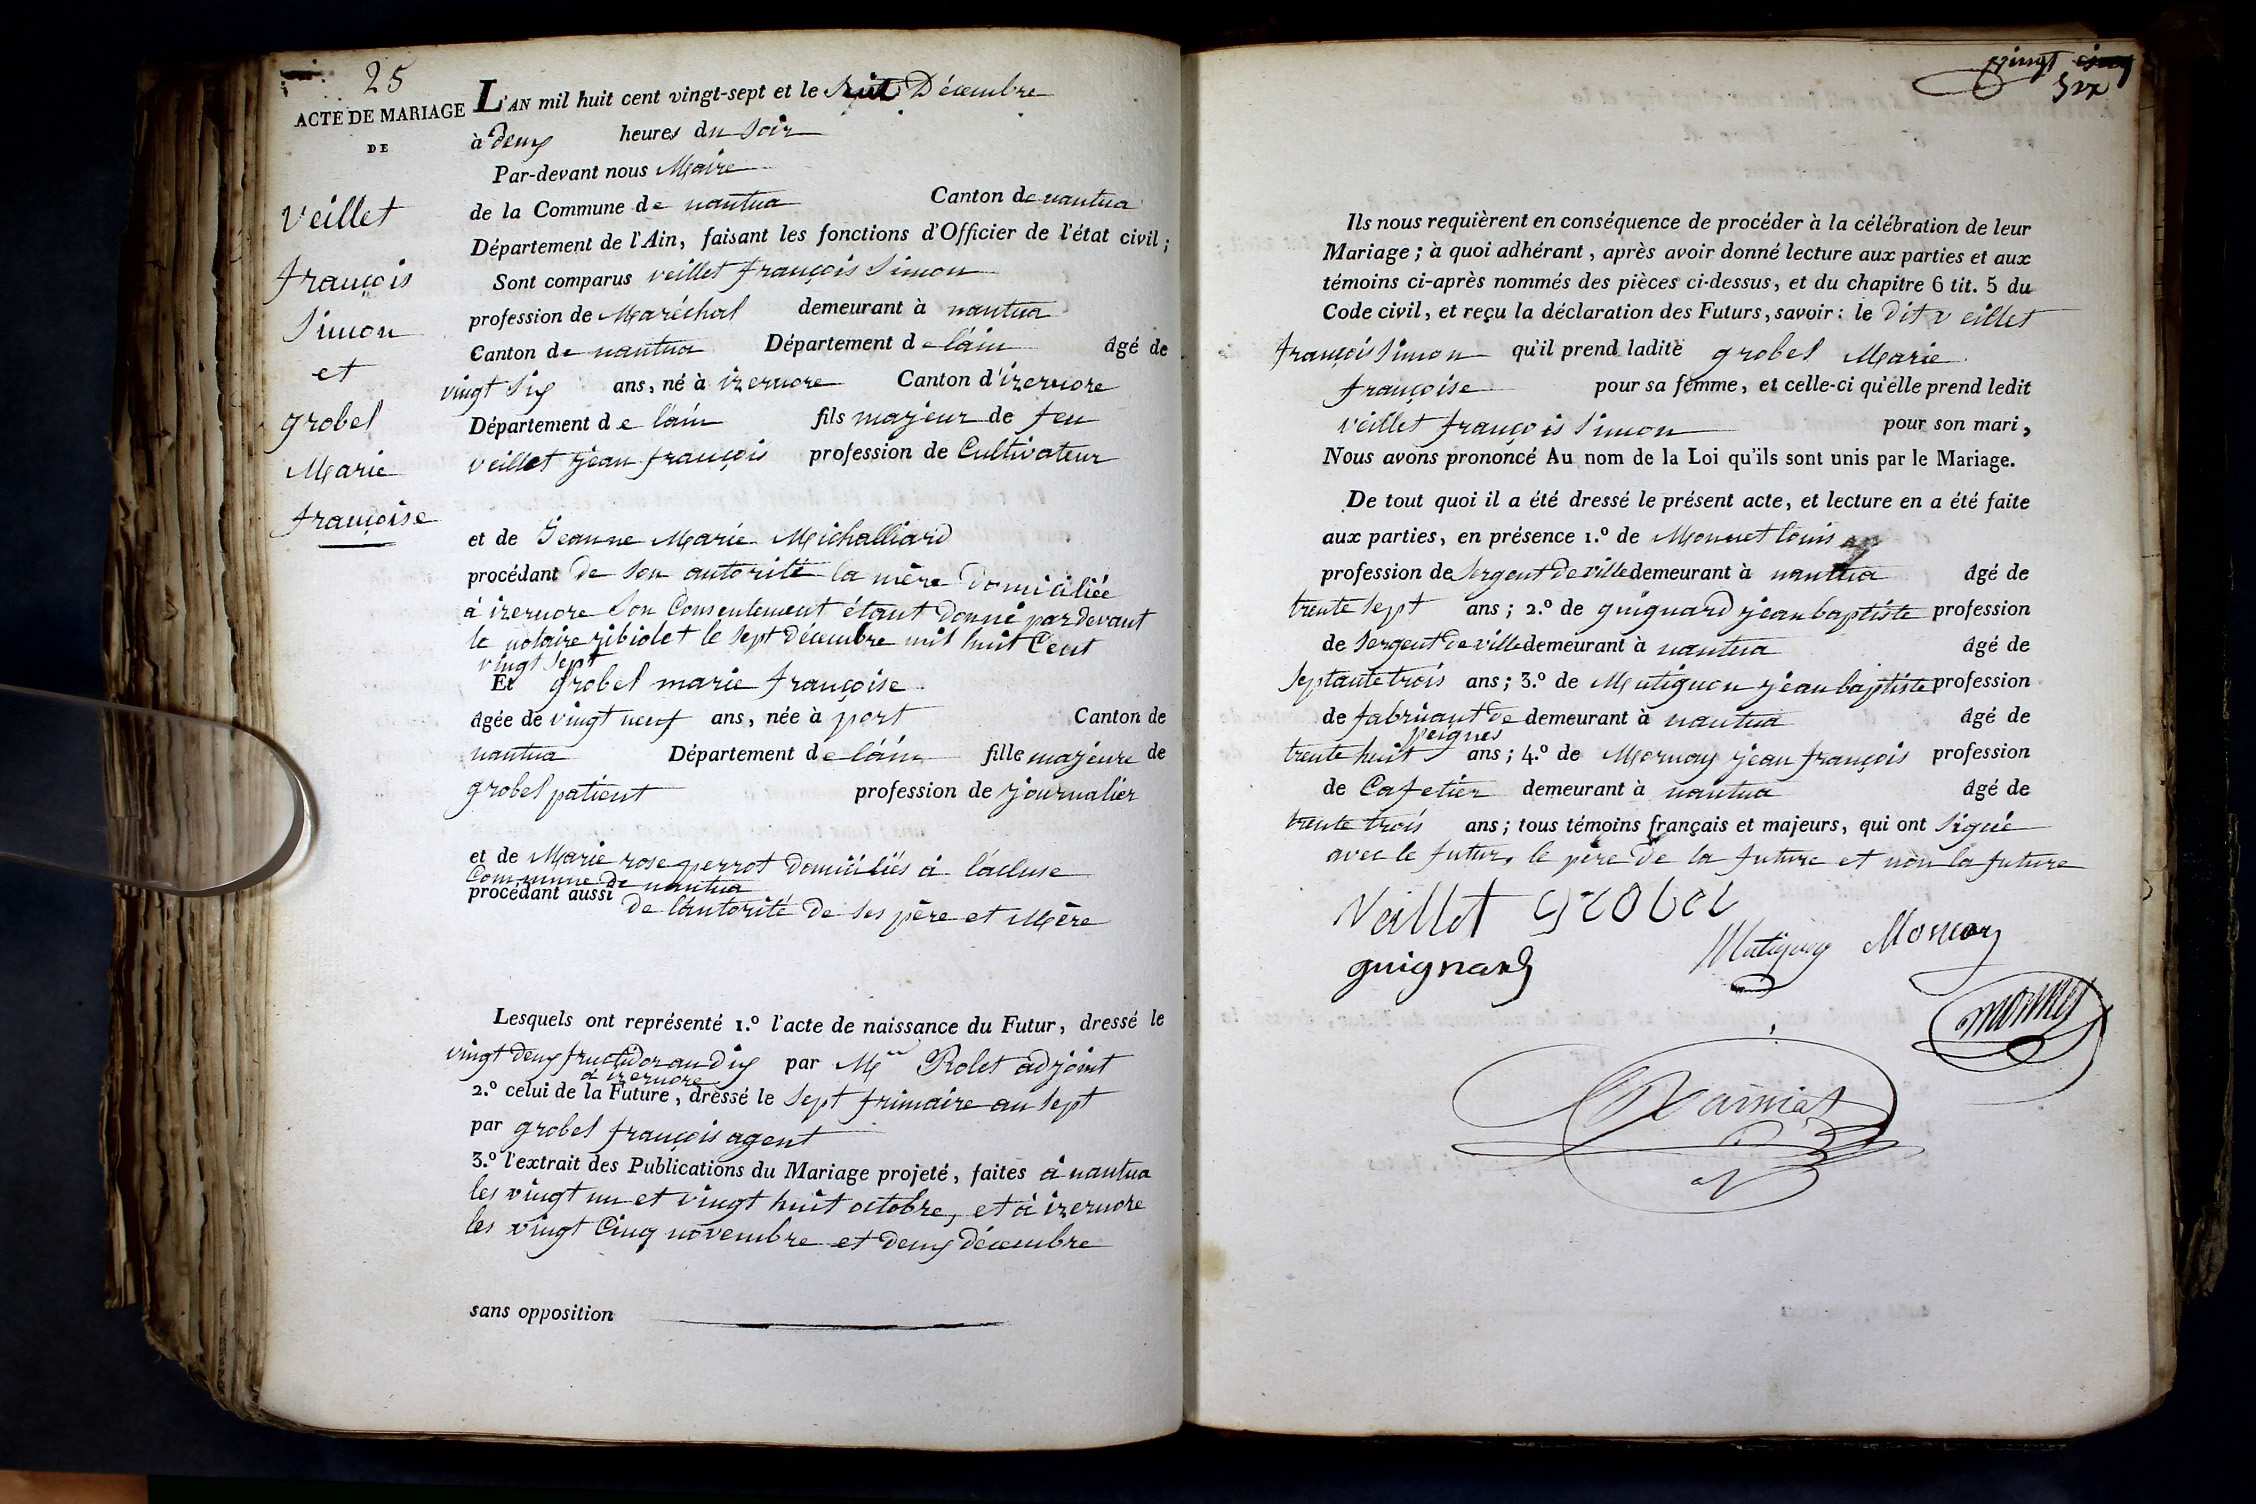 25
ACTE DE MARIAGE
DE
Veillet
françois
Simon
et
grobel
Marie
françoise
L'AN mil huit cent vingt-sept et le huit Décembre
à deux heures du soir
Par-devant nous Maire
de la Commune de nantua Canton de nantua
Département de l'Ain, faisant les fonctions d'Officier de l'état civil;
Sont comparus veillet françois Simon
profession de Maréchal demeurant à nantua
Canton de nantua Département de l'ain âgé de
vingt six ans, né à izernore Canton d'izernore
Département de l'ain fils majeur de feu
veillet jean françois profession de Cultivateur
et de Jeanne Marie Michalliard
procédant de son autorité la mère domiciliée
à izernore son Consentement étant donné pardevant
le notaire ribiolet le sept décembre mil huit Cent
vingt sept
Et grobel marie françoise
âgée de vingt neuf ans, née à port Canton de
nantua Département de l'ain fille majeure de
grobel patient profession de journalier
et de Marie rose perrot domiciliés à lacluse
Commune de nantua
procédant aussi de l'autorité de ses père et Mère
Lesquels ont représenté 1.º l'acte de naissance du Futur, dressé le
vingt deux fructidor an dix par Mr Rolet adjoint
à izernore
2.º celui de la Future, dressé le sept frimaire an sept
par grobel françois agent
3.º l'extrait des Publications du Mariage projeté, faites à nantua
les vingt un et vingt huit octobre, et à izernore
les vingt Cinq novembre et deux décembre
sans opposition
vingt cinq
Ils nous requièrent en conséquence de procéder à la célébration de leur
Mariage; à quoi adhérant, après avoir donné lecture aux parties et aux
témoins ci-après nommés des pièces ci-dessus, et du chapitre 6 tit. 5 du
Code civil, et reçu la déclaration des Futurs, savoir: le dit veillet
françois Simon qu'il prend ladite grobel Marie
françoise pour sa femme, et celle-ci qu'elle prend ledit
veillet françois Simon pour son mari,
Nous avons prononcé Au nom de la Loi qu'ils sont unis par le Mariage.
De tout quoi il a été dressé le présent acte, et lecture en a été faite
aux parties, en présence 1.º de Monnet Louis
profession de Sergent de ville demeurant à nantua âgé de
trente sept ans; 2.º de guignard jean baptiste profession
de Sergent de ville demeurant à nantua âgé de
Septante trois ans; 3.º de Mutignon jean baptiste profession
de fabricant de demeurant à nantua âgé de
peignes
trente huit ans; 4.º de Mornay jean françois profession
de Cafetier demeurant à nantua âgé de
trente trois ans; tous témoins français et majeurs, qui ont signé
avec le futur, le père de la future et non la future
Veillet grobel
guignard Mutignon Mornay
monnet